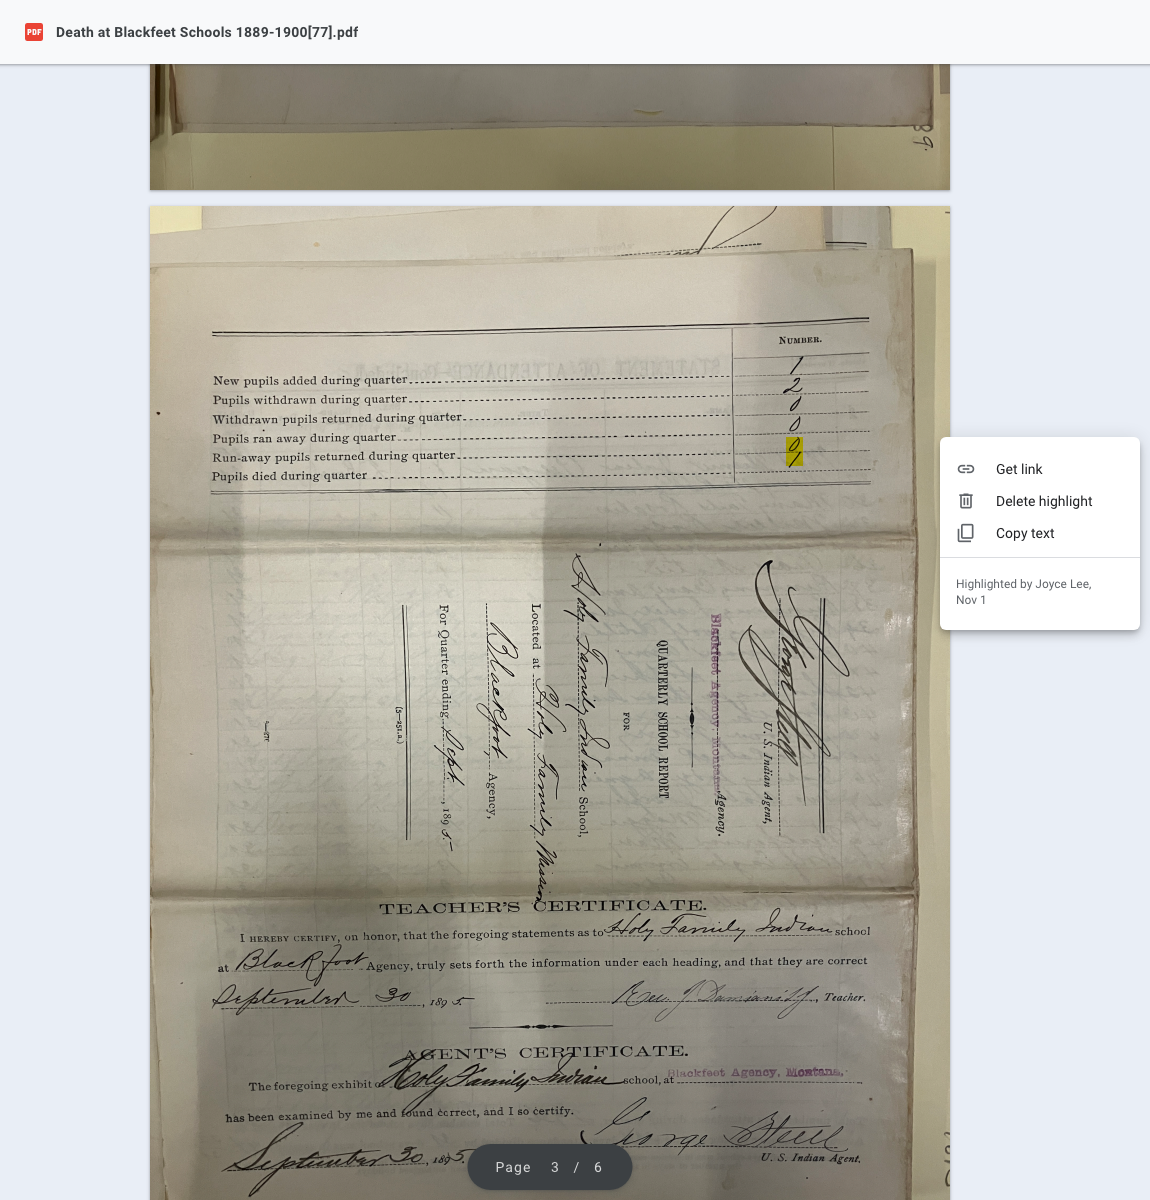 PDF Death at Blackfeet Schools 1889-1900[77].pdf
NUMBER.
New pupils added during quarter 1
Pupils withdrawn during quarter 2
Withdrawn pupils returned during quarter 0
Pupils ran away during quarter 0
Run-away pupils returned during quarter 0
Pupils died during quarter 1
Get link
Delete highlight
Copy text
Highlighted by Joyce Lee,
Nov 1
U. S. Indian Agent,
Blackfeet Agency, Montana. Agency.
QUARTERLY SCHOOL REPORT
FOR
Holy Family Indian School,
Located at Holy Family Mission
Blackfoot Agency,
For Quarter ending Sept., 1895
(5—251.a.)
TEACHER'S CERTIFICATE.
I HEREBY CERTIFY, on honor, that the foregoing statements as to Holy Family Indian school
at Blackfoot Agency, truly sets forth the information under each heading, and that they are correct
September 30, 1895 Rev. J Damiani S.J., Teacher.
AGENT'S CERTIFICATE.
The foregoing exhibit of Holy Family Indian school, at Blackfeet Agency, Montana.
has been examined by me and found correct, and I so certify.
September 30, 1895. George Steell
U. S. Indian Agent.
Page 3 / 6